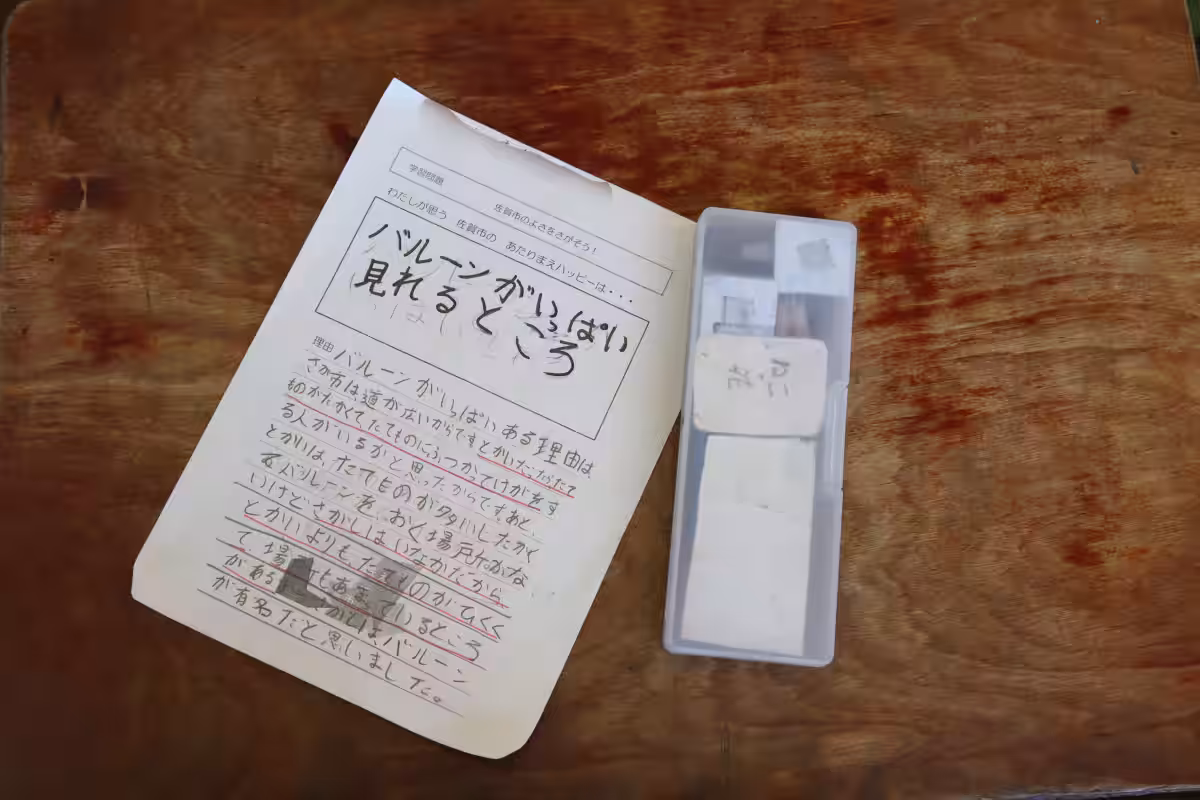 学習問題
佐賀市のよさをさがそう！
わたしが思う 佐賀市の あたりまえハッピーは・・・
バルーンがいっぱい
見れるところ
理由
バルーンがいっぱいある理由は
さが市は道が広いからですとかいだったらたて
ものがたかくてたてものにぶつかってけがをす
る人がいるかと思ったからですあと、
とかいは、たてものが多いしたかく
てバルーンをおく場所がな
いけどさがしはいなかだから
とかいよりもたてものがひくく
て場 もあまっているところ
がある かとはバルーン
が有名だと思いました。
ねこ